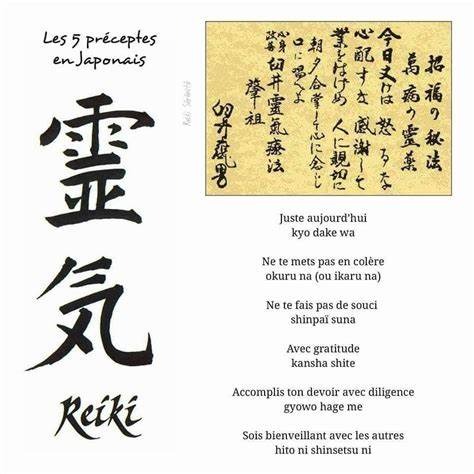 Les 5 préceptes
en Japonais
靈
気
Reiki
Reiki Sérénité
招福の秘法
萬病の霊薬
今日丈けは 怒るな
心配すな 感謝して
業をはげめ 人に親切に
朝夕合掌して心に念じ
口に唱へよ
心身
改善 臼井靈氣療法
肇祖
臼井甕男
Juste aujourd'hui
kyo dake wa
Ne te mets pas en colère
okuru na (ou ikaru na)
Ne te fais pas de souci
shinpaï suna
Avec gratitude
kansha shite
Accomplis ton devoir avec diligence
gyowo hage me
Sois bienveillant avec les autres
hito ni shinsetsu ni